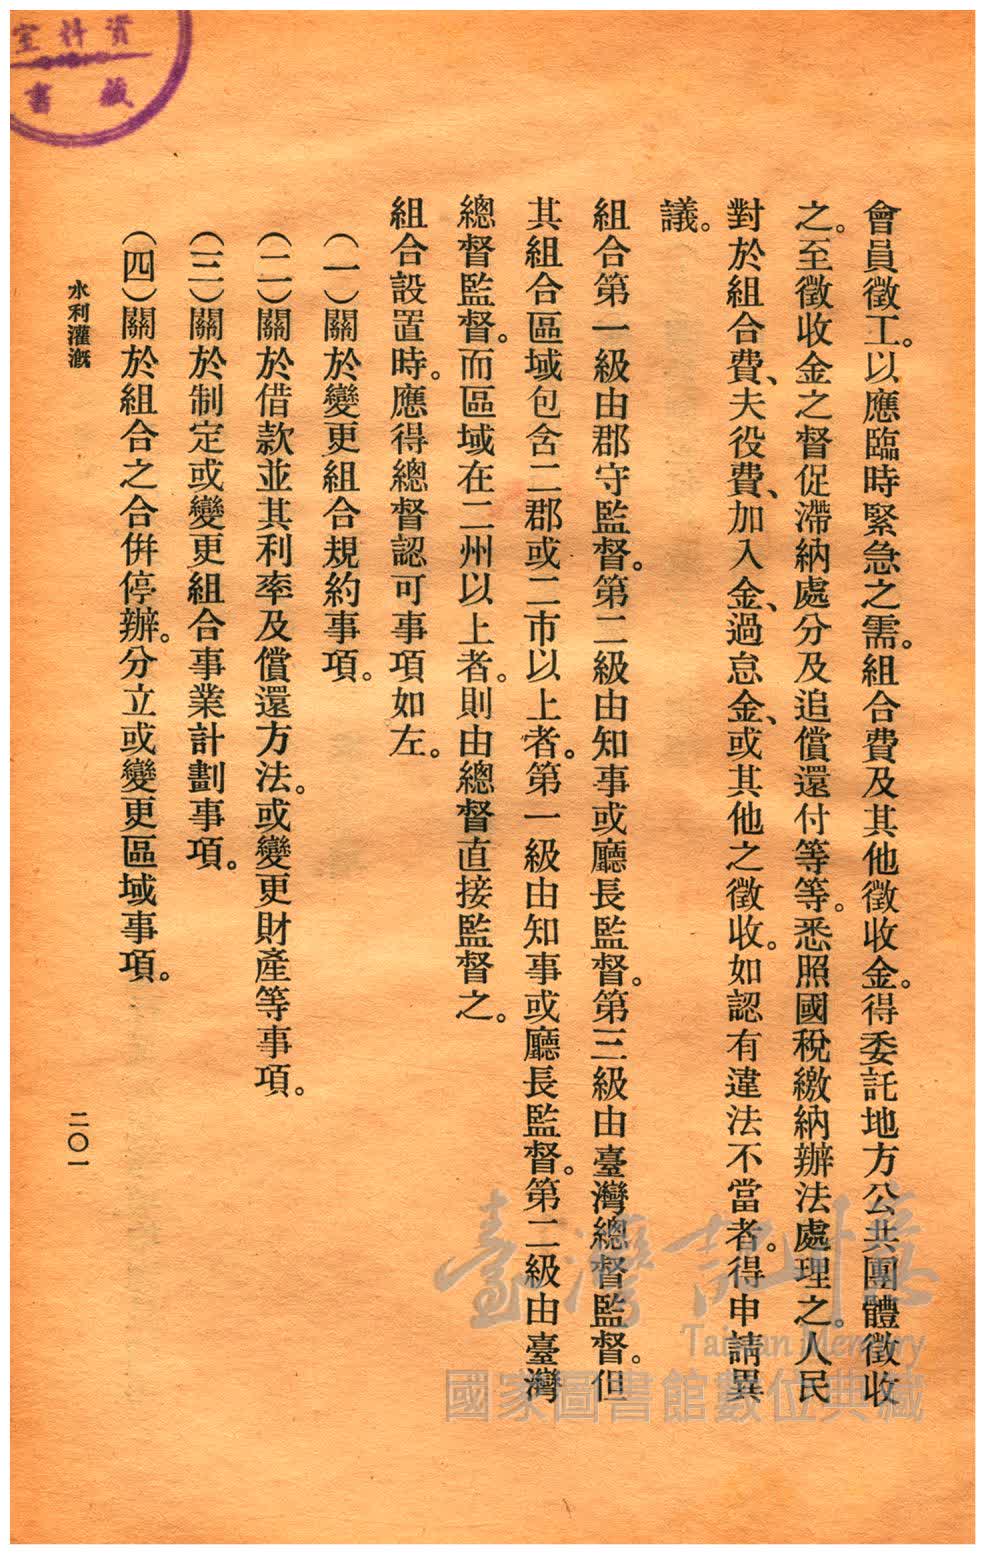 會員徵工。以應臨時緊急之需。組合費及其他徵收金。得委託地方公共團體徵收
之。至徵收金之督促滯納處分及追償還付等等。悉照國稅繳納辦法處理之。人民
對於組合費、夫役費、加入金、過怠金、或其他之徵收。如認有違法不當者。得申請異
議。
組合第一級由郡守監督。第二級由知事或廳長監督。第三級由臺灣總督監督。但
其組合區域包含二郡或二市以上者。第一級由知事或廳長監督。第二級由臺灣
總督監督。而區域在二州以上者。則由總督直接監督之。
組合設置時。應得總督認可事項如左。
（一）關於變更組合規約事項。
（二）關於借款並其利率及償還方法。或變更財產等事項。
（三）關於制定或變更組合事業計劃事項。
（四）關於組合之合併停辦。分立或變更區域事項。
水利灌漑
二〇一
資料室
藏書
臺灣記憶
Taiwan Memory
國家圖書館數位典藏